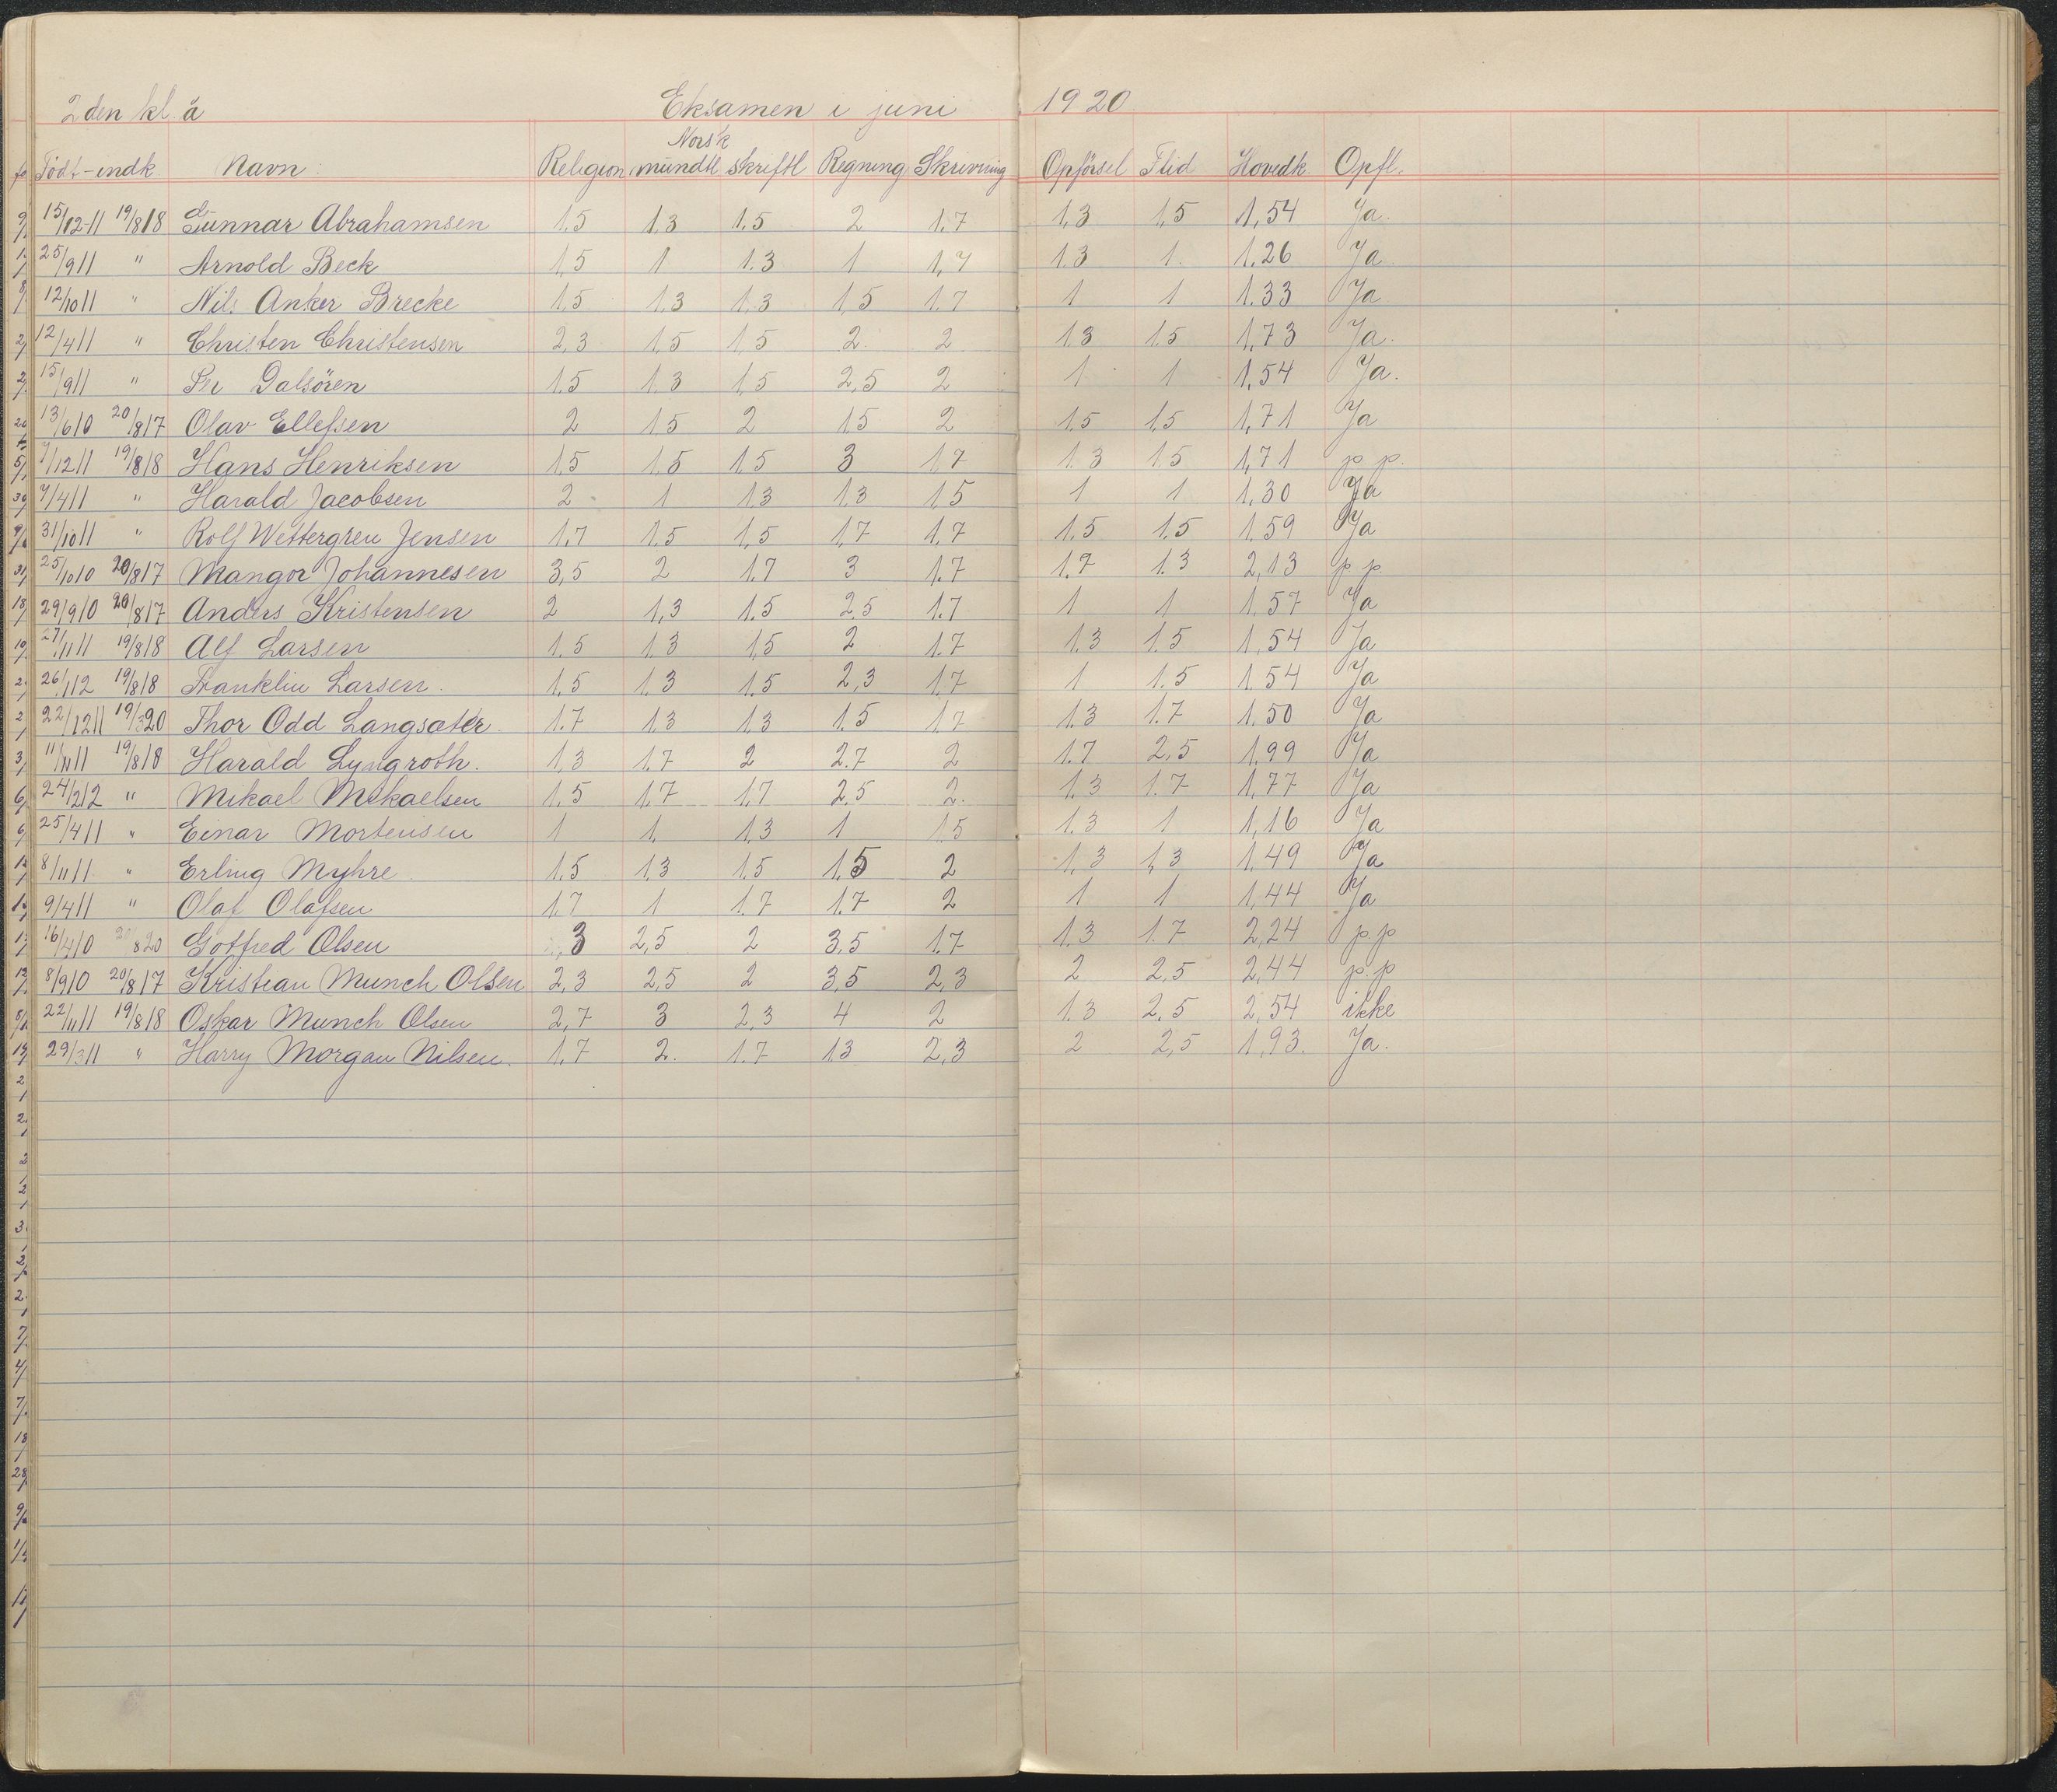 2den kl. a Eksamen i juni 1920
Norsk
Födt - indk. Navn Religion mundtl skriftl Regning Skrivning Opförsel Flid Hovedk. Opfl.
15/12-11 19/818 Gunnar Abrahamsen 1.5 1.3 1.5 2 1.7 1,3 1,5 1,54 Ja.
25/911 " Arnold Beck 1,5 1 1.3 1 1,7 1.3 1. 1.26 Ja
12/1011 " Nils Anker Brecke 1.5 1.3 1.3 1,5 1.7 1 1 1.33 Ja
12/411 " Christen Christensen 2,3 1.5 1,5 2 2 1.3 1.5 1,73 Ja.
15/911 " Per Dalsören 1.5 1.3 1,5 2,5 2 1 1 1,54 Ja.
13/610 20/817 Olav Ellefsen 2 1.5 2 1.5 2 1.5 1.5 1,71 Ja
7/1211 19/818 Hans Henriksen 1.5 1.5 1.5 3 1.7 1.3 1.5 1,71 p p.
7/411 " Harald Jacobsen 2 1 1.3 1.3 1.5 1 1 1.30 Ja
31/1011 " Rolf Wettergren Jensen 1.7 1.5 1,5 1,7 1,7 1.5 1.5 1.59 Ja
25/1010 20/817 Mangor Johannesen 3,5 2 1.7 3 1.7 1.7 1.3 2,13 p p
29/910 20/817 Anders Kristensen 2 1,3 1.5 2.5 1.7 1 1 1.57 Ja
27/1111 19/818 Alf Larsen 1.5 1.3 1,5 2 1.7 1.3 1.5 1.54 Ja
26/112 19/818 Franklin Larsen 1.5 1.3 1.5 2,3 1.7 1 1.5 1.54 Ja
22/1211 19/320 Thor Odd Langsæter 1.7 1.3 1.3 1.5 1.7 1.3 1.7 1.50 Ja
11/1111 19/818 Harald Lyngroth. 1,3 1.7 2 2.7 2 1.7 2,5 1,99 Ja
24/212 " Mikael Mikaelsen 1.5 1.7 1.7 2.5 2. 1.3 1.7 1,77 Ja
25/411 " Einar Mortensen 1 1. 1.3 1 1.5 1.3 1 1,16 Ja
8/1111 " Erling Myhre 1.5 1,3 1.5 1.5 2 1,3 1,3 1.49 Ja
9/411 " Olaf Olafsen 1.7 1 1.7 1.7 2 1 1 1,44 Ja
16/410 20/820 Gotfred Olsen 3 2,5 2 3,5 1.7 1.3 1.7 2,24 p.p
8/910 20/817 Kristian Munch Olsen 2,3 2,5 2 3,5 2,3 2 2,5 2,44 p.p
22/1111 19/818 Oskar Munch Olsen 2,7 3 2,3 4 2 1.3 2.5 2,54 ikke
29/311 " Harry Morgan Nilsen. 1.7 2. 1.7 1.3 2,3 2 2,5 1,93. Ja.